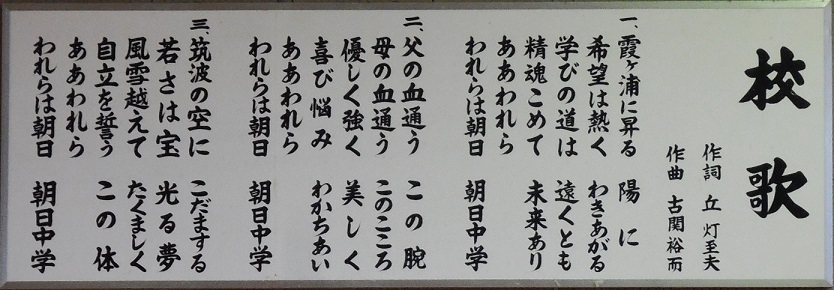 校歌
作詞 丘 灯至夫
作曲 古関裕而
一、霞ヶ浦に昇る 陽に
希望は熱く わきあがる
学びの道は 遠くとも
精魂こめて 未来あり
ああわれら
われらは朝日 朝日中学
二、父の血通う この腕
母の血通う このこころ
優しく強く 美しく
喜び悩み わかちあい
ああわれら
われらは朝日 朝日中学
三、筑波の空に こだまする
若さは宝 光る夢
風雪越えて たくましく
自立を誓う この体
ああわれら
われらは朝日 朝日中学